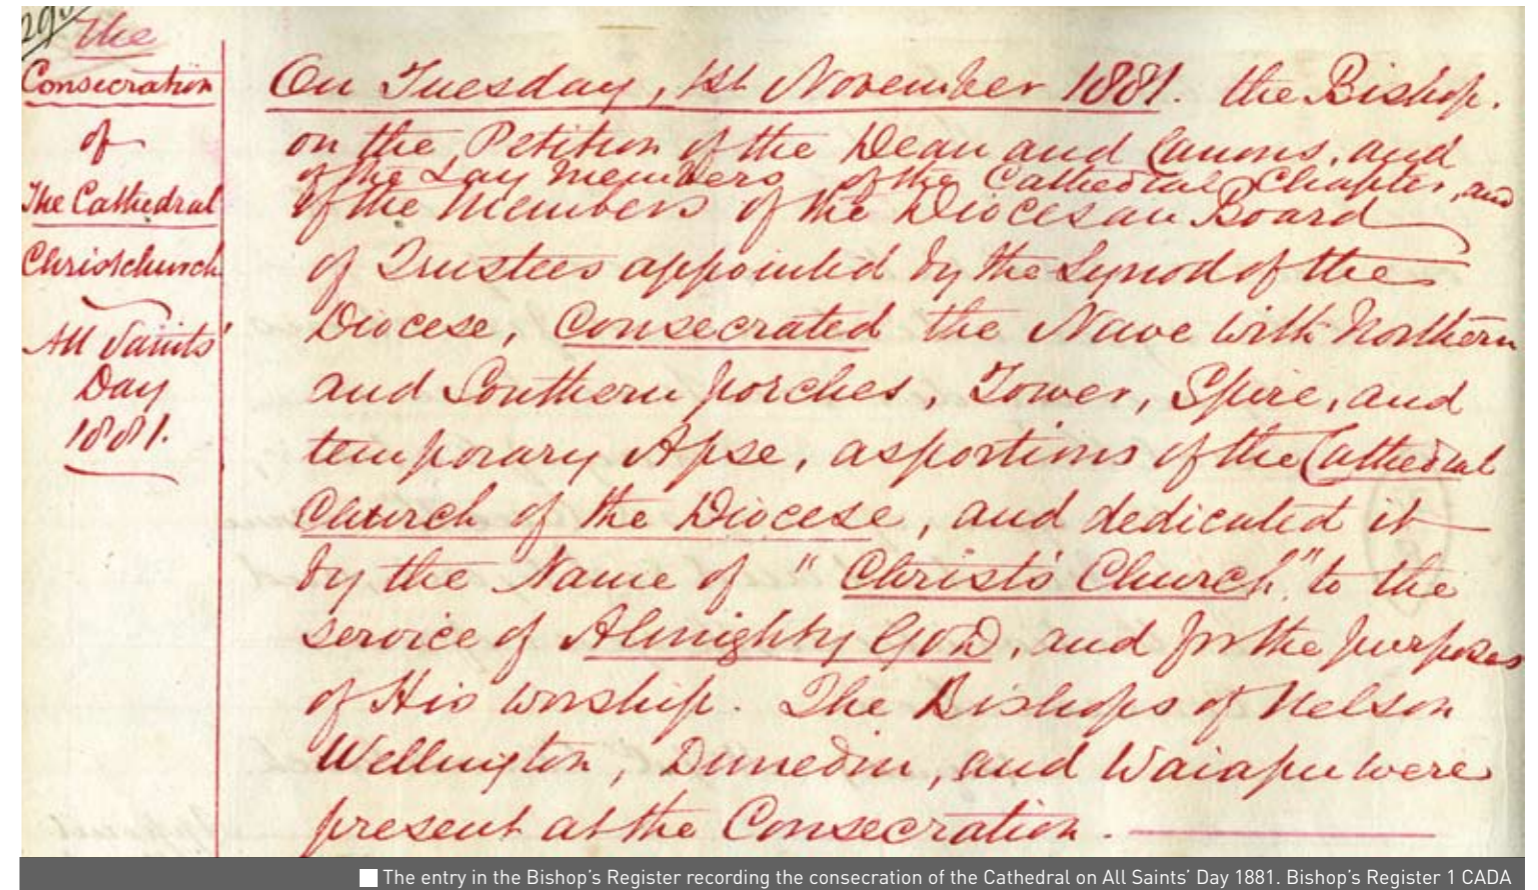 The
Consecration
of
The Cathedral
Christchurch
All Saints'
Day
1881.
On Tuesday, 1st November 1881. the Bishop.
on the Petition of the Dean and Canons, and
of the Lay Members of the Cathedral Chapter, and
of the Members of the Diocesan Board
of Trustees appointed by the Synod of the
Diocese, Consecrated the Nave with Northern
and Southern porches, Tower, Spire, and
temporary Apse, as portions of the Cathedral
Church of the Diocese, and dedicated it
by the Name of "Christ's Church" to the
service of Almighty GOD, and for the purposes
of His worship. The Bishops of Nelson
Wellington, Dunedin, and Waiapu were
present at the Consecration.
The entry in the Bishop's Register recording the consecration of the Cathedral on All Saints' Day 1881. Bishop's Register 1 CADA